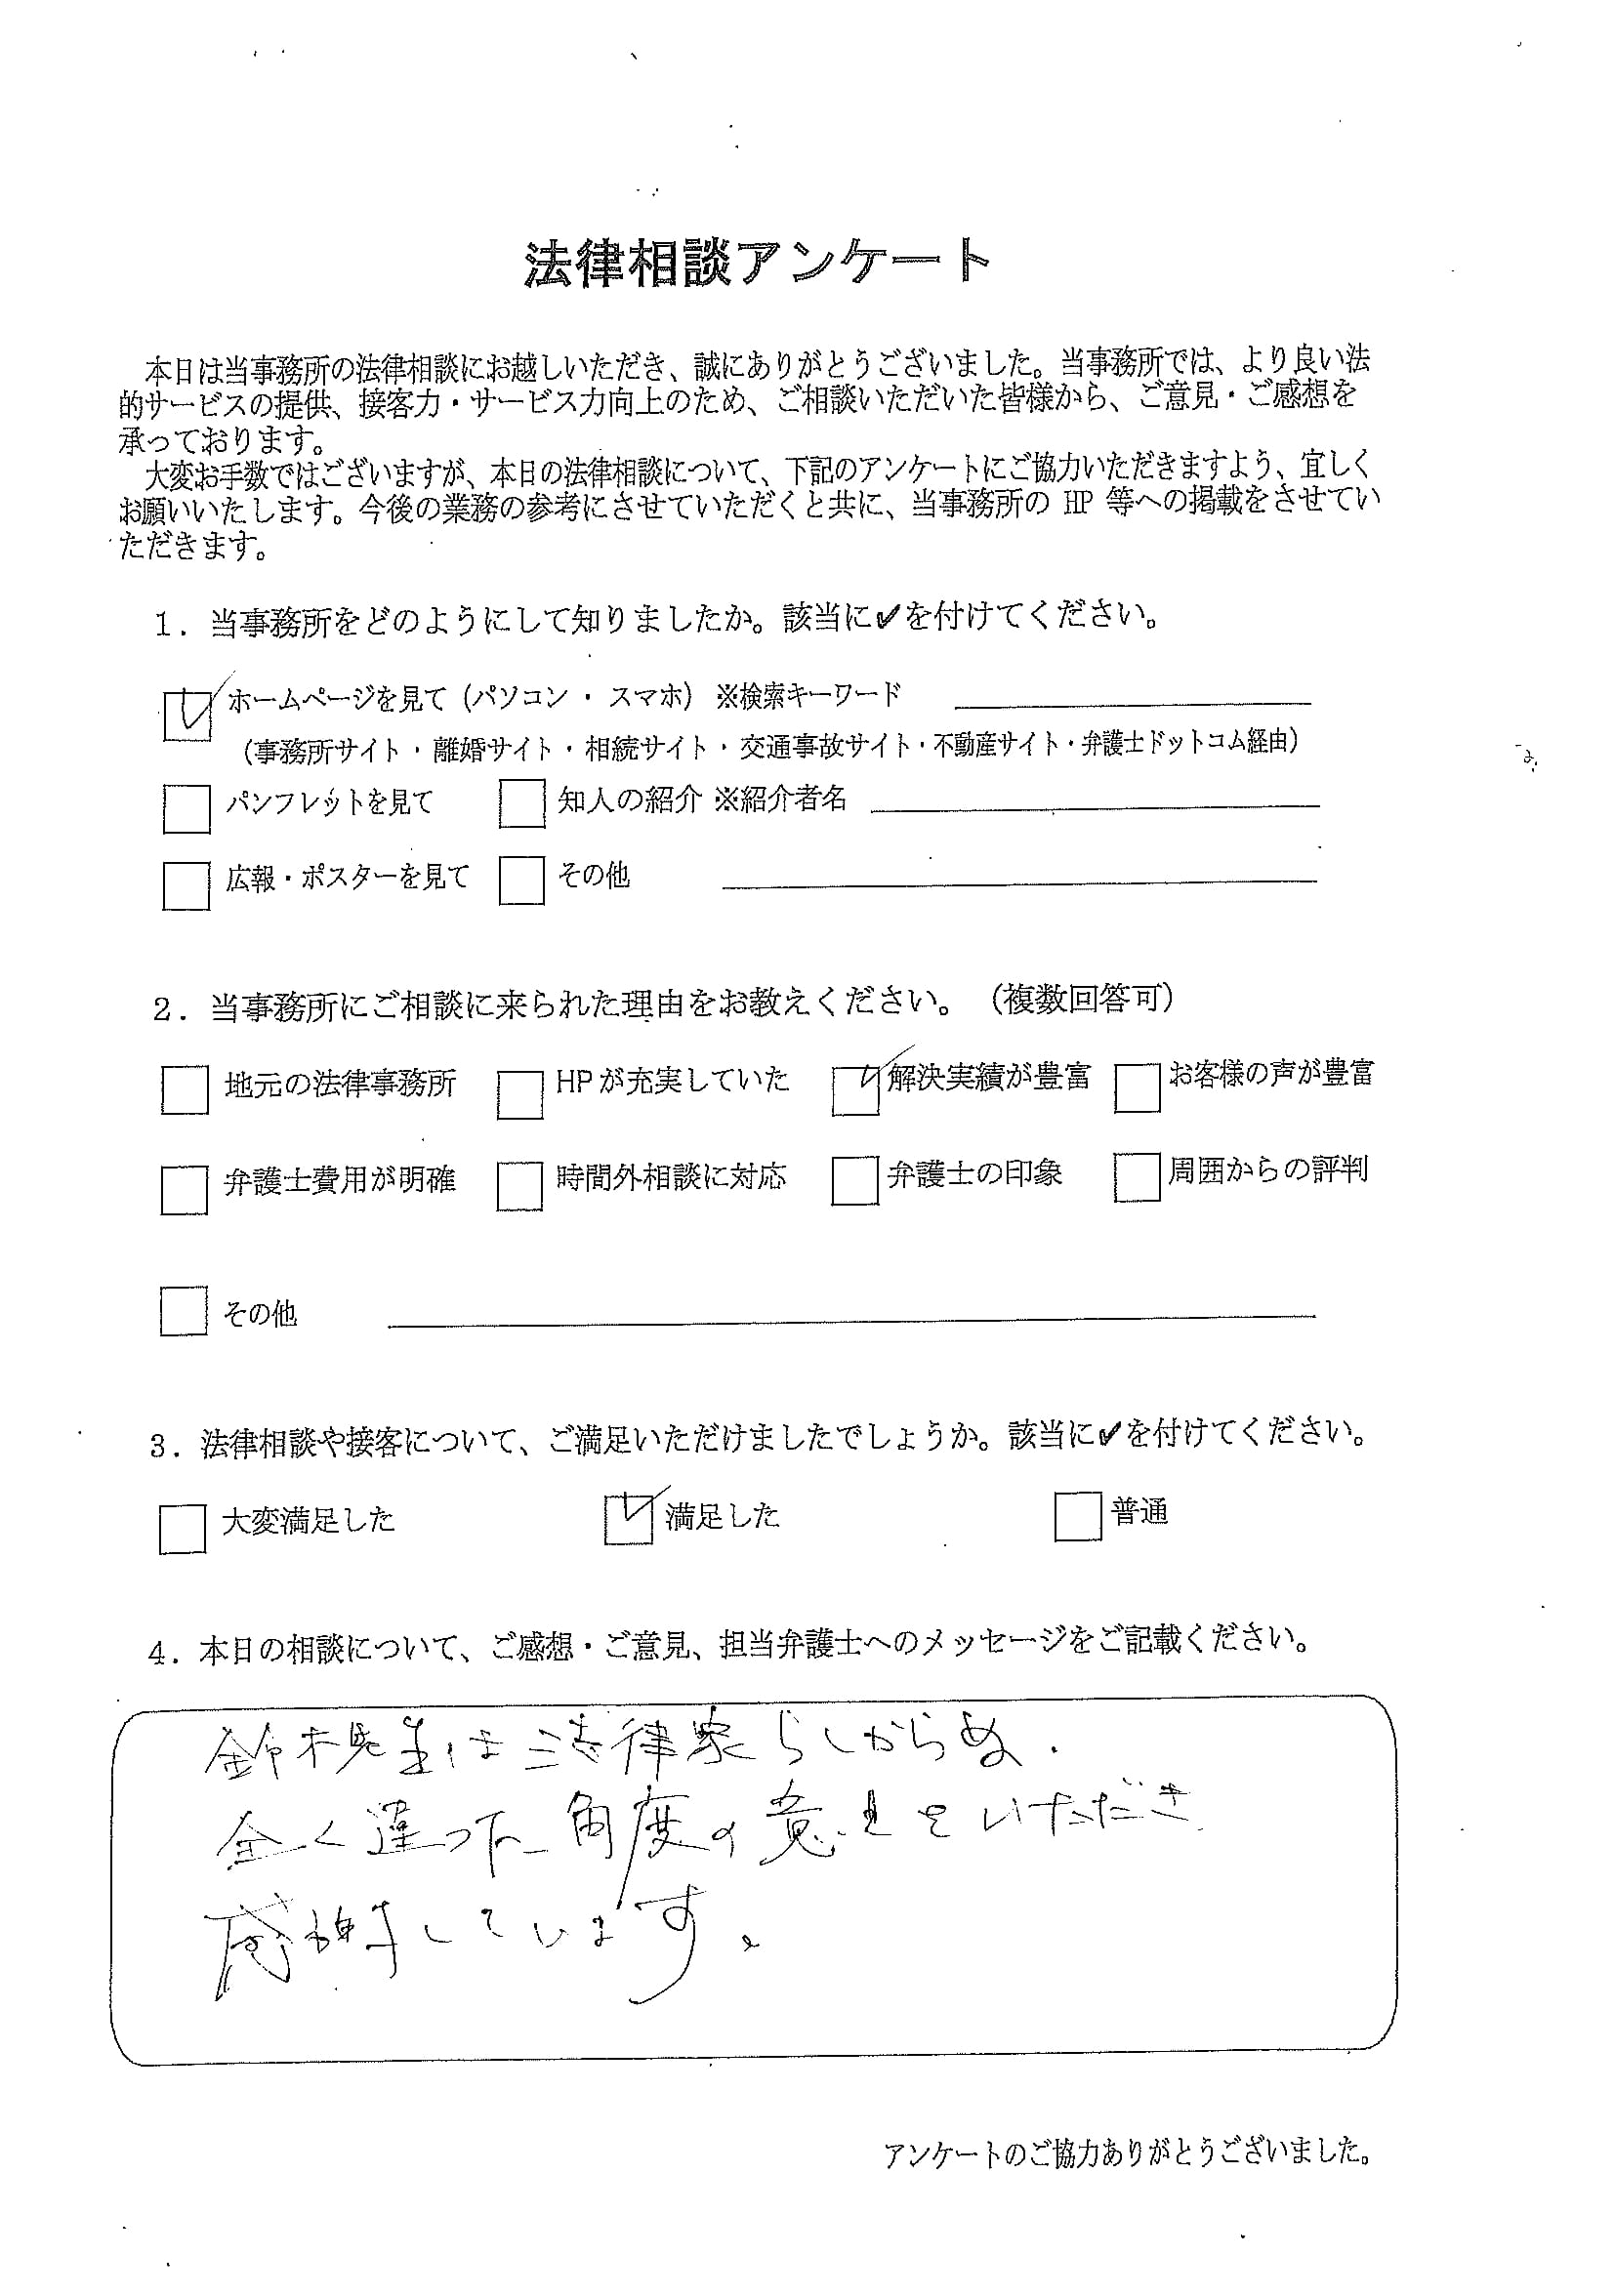 法律相談アンケート
本日は当事務所の法律相談にお越しいただき、誠にありがとうございました。当事務所では、より良い法
的サービスの提供、接客力・サービス力向上のため、ご相談いただいた皆様から、ご意見・ご感想を
承っております。
大変お手数ではございますが、本日の法律相談について、下記のアンケートにご協力いただきますよう、宜しく
お願いいたします。今後の業務の参考にさせていただくと共に、当事務所の HP 等への掲載をさせてい
ただきます。
1. 当事務所をどのようにして知りましたか。該当に✔を付けてください。
ホームページを見て(パソコン ・ スマホ) ※検索キーワード
(事務所サイト・離婚サイト・相続サイト・交通事故サイト・不動産サイト・弁護士ドットコム経由)
パンフレットを見て 知人の紹介 ※紹介者名
広報・ポスターを見て その他
2. 当事務所にご相談に来られた理由をお教えください。(複数回答可)
地元の法律事務所 HPが充実していた 解決実績が豊富 お客様の声が豊富
弁護士費用が明確 時間外相談に対応 弁護士の印象 周囲からの評判
その他
3. 法律相談や接客について、ご満足いただけましたでしょうか。該当に✔を付けてください。
大変満足した 満足した 普通
4. 本日の相談について、ご感想・ご意見、担当弁護士へのメッセージをご記載ください。
鈴木先生は法律家らしからぬ、
全く違った角度の意見をいただき
感謝しています。
アンケートのご協力ありがとうございました。